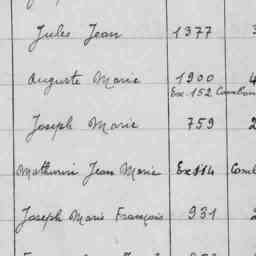 Jules Jean 1377
Auguste Marie 1900 4
Ex. 152
Joseph Marie 759 2
Mathurin Jean Marie Ex 114
Joseph Marie François 931 2